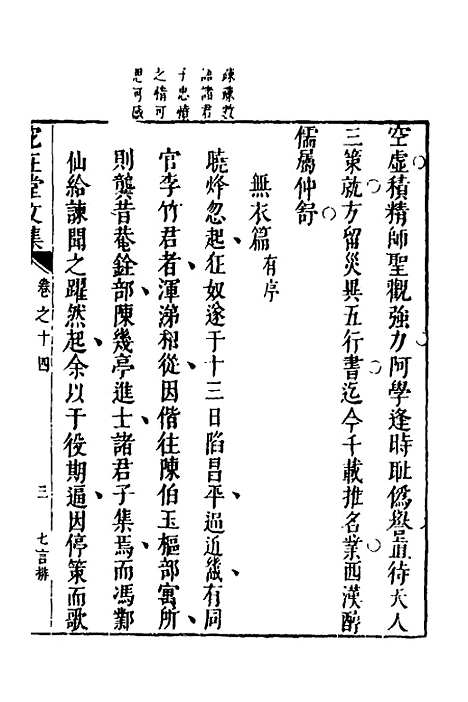 疎疎數
語諸君
子忠憤
之情可
思可感
空虛積精師聖觀強力阿學逢時耻僞舉㫖待大人
三策就方留災異五行書迄今千載推名業西漢醇
儒屬仲舒
無衣篇有序
曉烽忽起狂奴遂于十三日陷昌平逼近畿有同
官李竹君者渾涕和從因偕往陳伯玉樞部寓所
則龔昔菴銓部陳幾亭進士諸君子集焉而馮鄴
仙給諫聞之躍然起余以于役期逼因停策而歌
堂文集
卷之十四
三
七言排